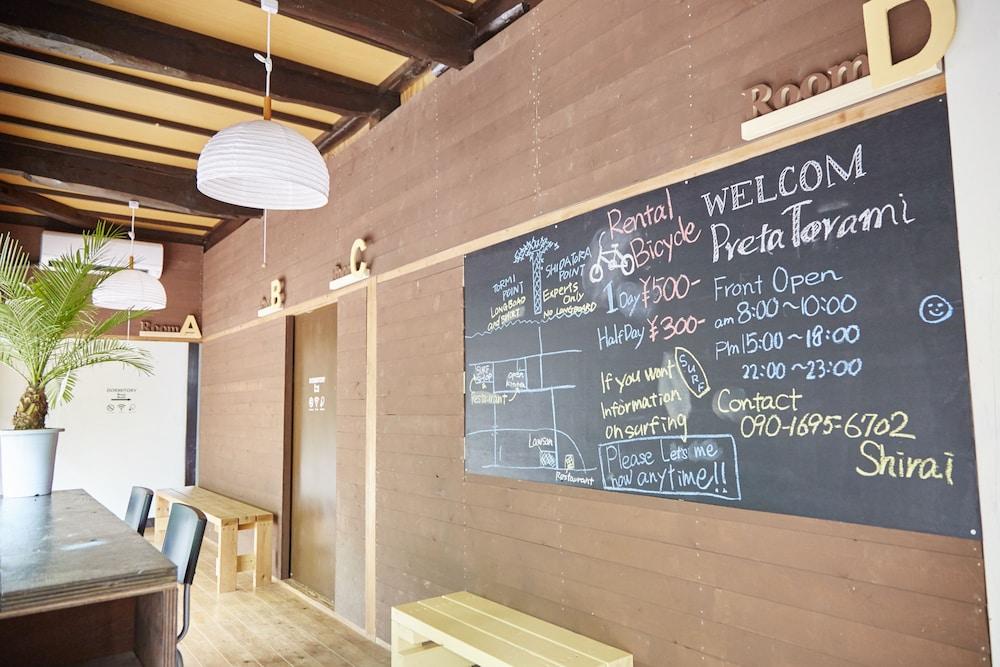 Room D
Room C
B
Room A
DORMITORY
DORMITORY
WELCOM
Preta Torami
Front Open
am 8:00~10:00
Pm 15:00~18:00
22:00~23:00
Contact
090-1695-6702
Shirai
Rental
Bicycle
1Day ¥500-
HalfDay ¥300-
If you want
Information
on surfing
SURF
Please Let's me
now anytime!!
TORMI
POINT
LONGBOAD
and SHORT
SHIDATORA
POINT
EXPERTS
Only
No LONGBOARD
SURF
SHOP
open
Restaurant
Lawson
Restaurant